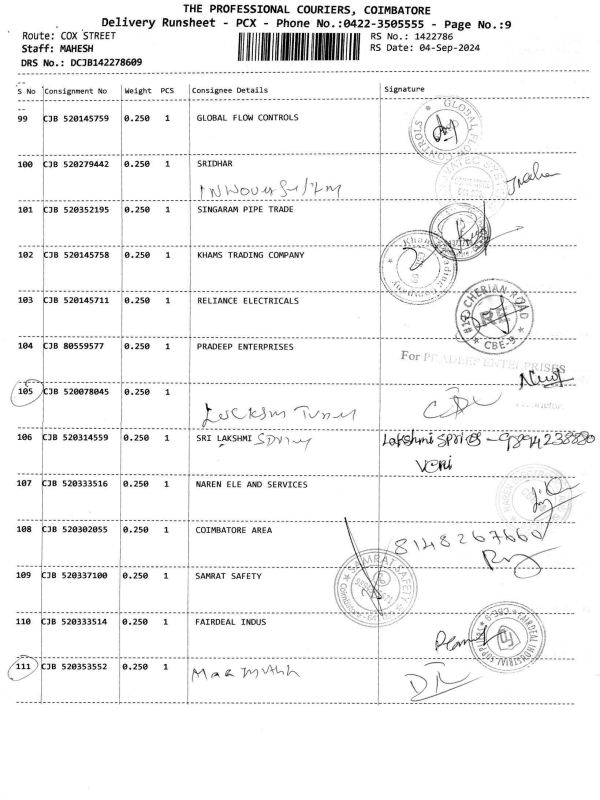 THE PROFESSIONAL COURIERS, COIMBATORE
Delivery Runsheet - PCX - Phone No.:0422-3505555 - Page No.:9
Route: COX STREET
RS No.: 1422786
Staff: MAHESH
RS Date: 04-Sep-2024
DRS No.: DCJB142278609
S No Consignment No Weight PCS Consignee Details Signature
99 CJB 520145759 0.250 1 GLOBAL FLOW CONTROLS
GLOBAL FLOW CONTROLS
100 CJB 520279442 0.250 1 SRIDHAR
101 CJB 520352195 0.250 1 SINGARAM PIPE TRADE
102 CJB 520145758 0.250 1 KHAMS TRADING COMPANY
Khams Trading Company
103 CJB 520145711 0.250 1 RELIANCE ELECTRICALS
CHERIAN ROAD
RE
CBE-9
104 CJB 80559577 0.250 1 PRADEEP ENTERPRISES
For PRADEEP ENTERPRISES
105 CJB 520078045 0.250 1
106 CJB 520314559 0.250 1 SRI LAKSHMI
Lakshmi
107 CJB 520333516 0.250 1 NAREN ELE AND SERVICES
108 CJB 520302055 0.250 1 COIMBATORE AREA
8148267660
109 CJB 520337100 0.250 1 SAMRAT SAFETY
SAMRAT SAFETY
110 CJB 520333514 0.250 1 FAIRDEAL INDUS
FAIRDEAL INDUSTRIAL SUPPLIES
CBE-9
111 CJB 520353552 0.250 1